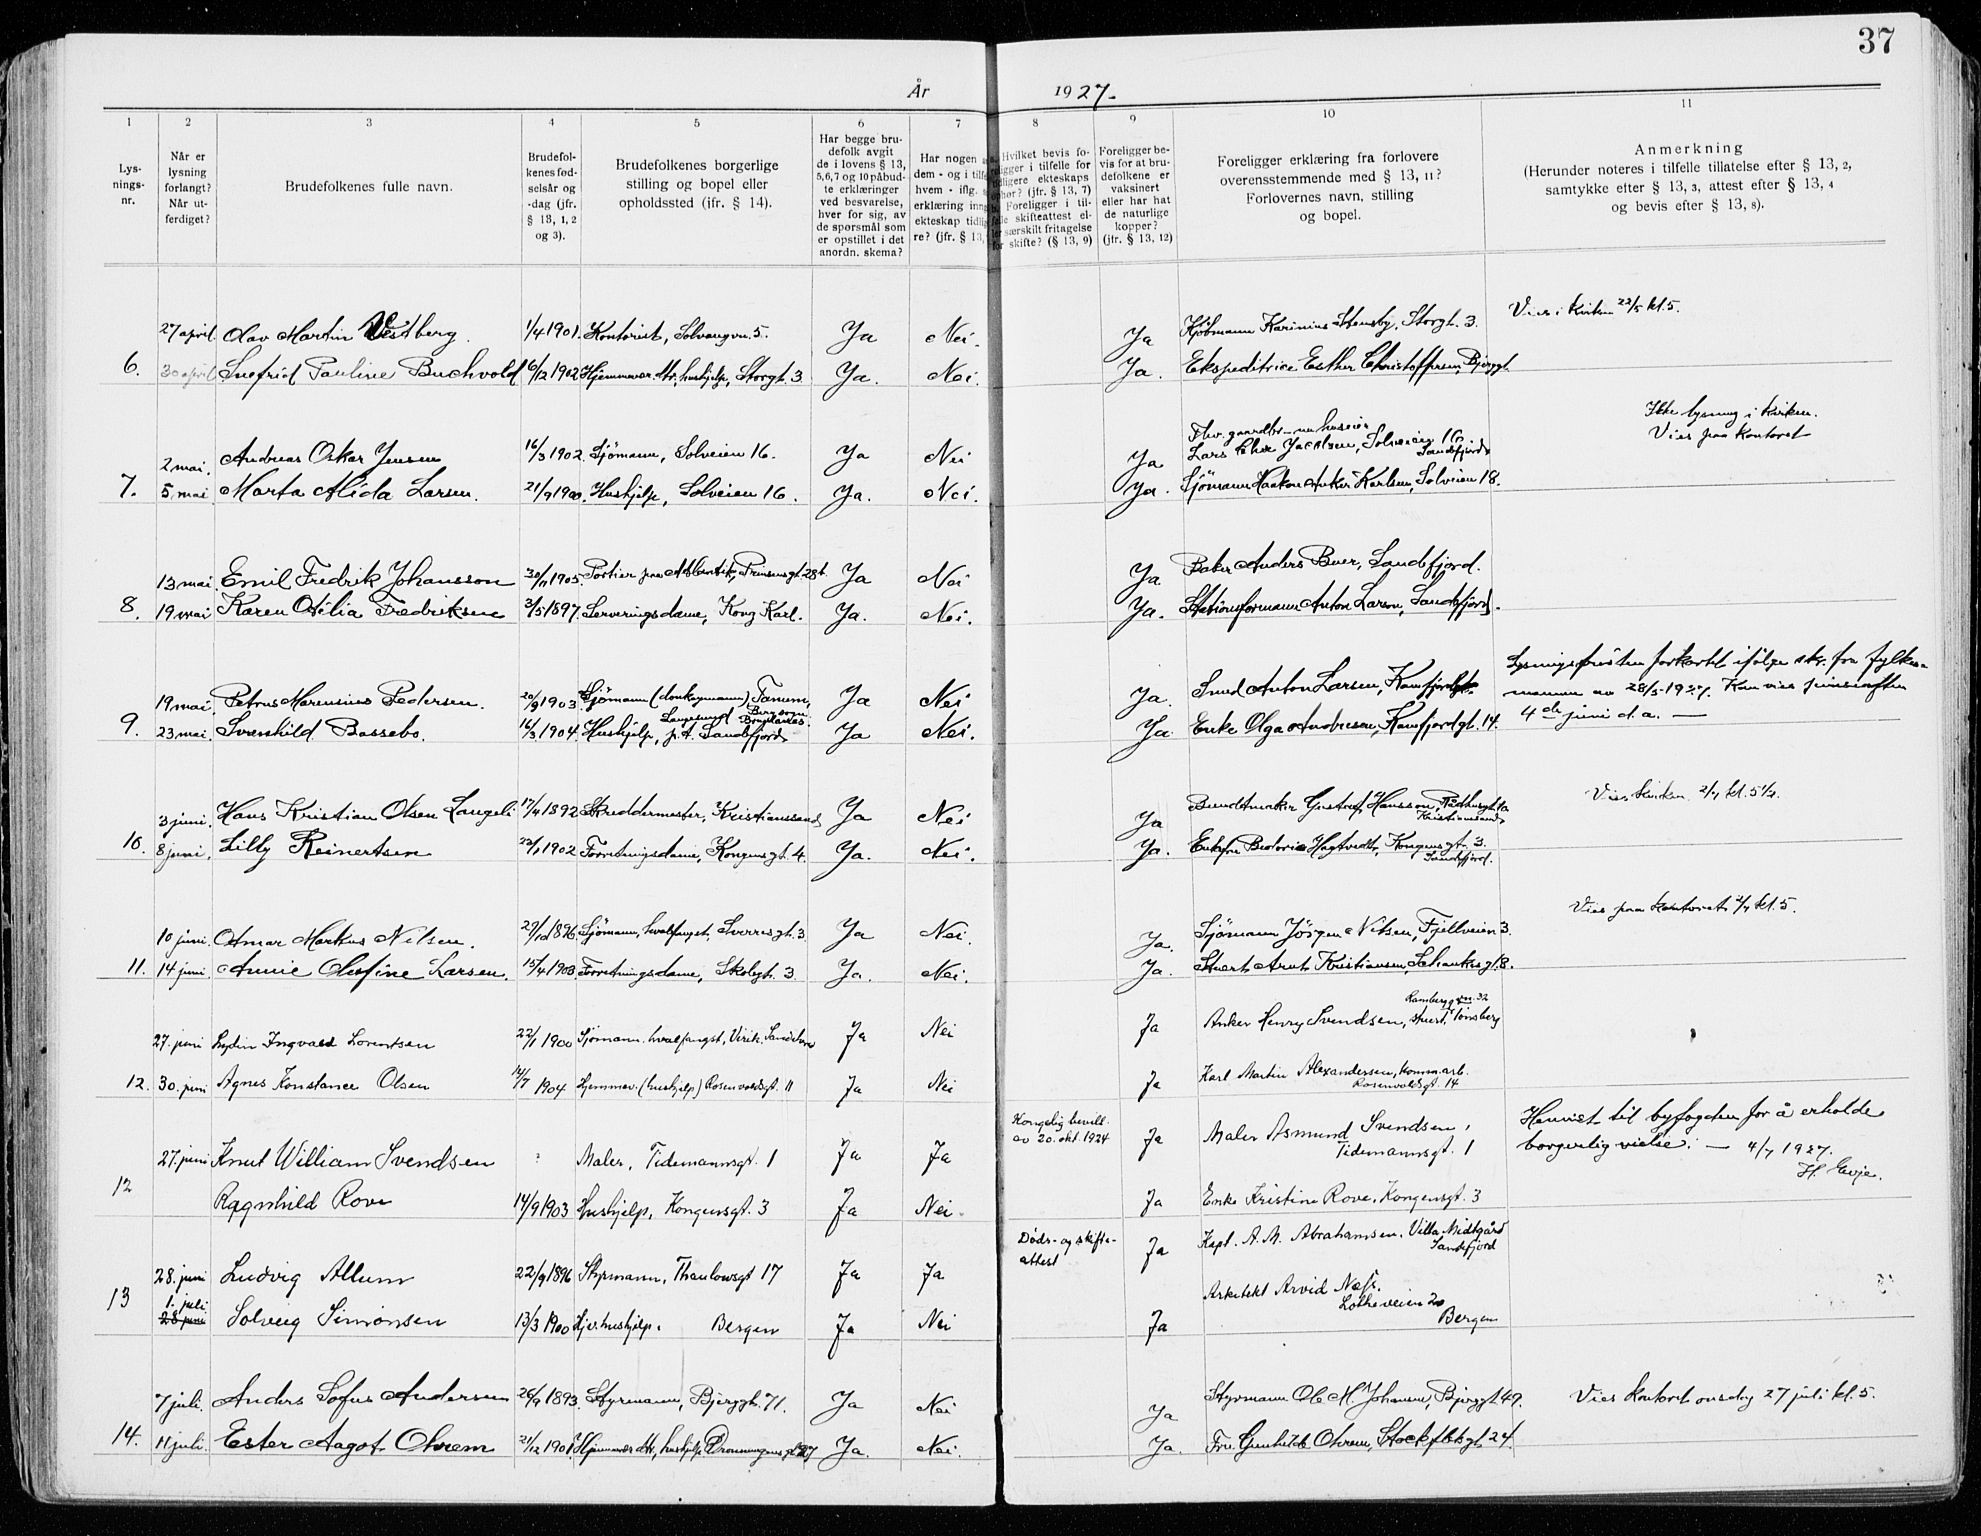 37
År 1927.
1 2 3 4 5 6 7 8 9 10 11
Lys-
nings-
nr.
Når er
lysning
forlangt?
Når ut-
ferdiget?
Brudefolkenes fulle navn.
Brudefol-
kenes fød-
selsår og
-dag (jfr.
§ 13, 1, 2
og 3).
Brudefolkenes borgerlige
stilling og bopel eller
opholdssted (jfr. § 14).
Har begge bru-
defolk avgit
de i lovens § 13,
5,6,7 og 10 påbud-
te erklæringer
ved besvarelse,
hver for sig, av
de spørsmål som
er opstillet i det
anordn. skema?
Har nogen
dem - og i tilf
hvem - iflg.
erklæring inng
ekteskap tidlig
re? (jfr. § 13,
Hvilket bevis fo-
religger i tilfelle for
tidligere ekteskaps
ophør? (jfr. § 13, 7)
Foreligger i til-
felle skifteattest el-
ler særskilt fritagelse
for skifte? (§ 13, 9)
Foreligger be-
vis for at bru-
defolkene er
vaksinert
eller har hat
de naturlige
kopper?
(jfr. § 13, 12)
Foreligger erklæring fra forlovere
overensstemmende med § 13, 11?
Forlovernes navn, stilling
og bopel.
Anmerkning
(Herunder noteres i tilfelle tillatelse efter § 13, 2,
samtykke efter § 13, 3, attest efter § 13, 4
og bevis efter § 13, 8).
27 april Olav Martin Vestberg. 1/4 1901. Kontorist, Solvangvn. 5. Ja Nei. Ja Kjøbmann Karinius Stensby, Storgt. 3. Vies i Kirken 22/5 kl. 5.
6. 30 april Snefrid Pauline Buchvold 6/12 1902 Hjemmevær. Hr. hushjelp, Storgt. 3 Ja. Nei. Ja. Ekspeditrice Esther Christoffersen, Bjerggt.
2 mai. Andreas Oskar Jensen 16/3 1902. Sjömann, Solveien 16. Ja Nei Ja Fhv. gaardbr. nu huseier
Lars Chr. Jacobsen, Solveien 16, Sandefjord. Ikke lysning i Kirken.
Vies paa Kontoret
7. 5. mai Marta Alida Larsen. 21/9 1900. Hushjelp, Solveien 16. Ja. Nei. Ja. Sjömann Haakon Anker Karlsen, Solveien 18.
13 mai. Emil Fredrik Johansson 30/11 1905. Portier paa Atlantik, Prinsensgt. 28b. Ja Nei Ja Baker Anders Buer, Sandefjord.
8. 19. mai Karen Otelia Fredriksen 3/5 1897. Serveringsdame, Kong Karl. Ja. Nei. Ja. Stationsformann Anton Larsen, Sandefjord.
19 mai. Petrus Marensius Pedersen. 20/9 1903. Sjömann (donkeymann) Tanum,
Langesund Bergsogn
Brunlanes Ja Nei Ja. Smed Anton Larsen, Kamfjordgt. Lysningsfristen forkortet ifölge skr. fra fylkes-
mannen av 28/5-1927. Kan vies pinseaften
4de juni d.a. —
9. 23. mai. Svenhild Bassebo. 16/3 1904. Hushjelp, p.t. Sandefjord. Ja Nei. Ja. Enke Olga Andresen, Kamfjordgt. 14.
3 juni. Hans Kristian Olsen Langeli 17/4 1892 Skreddermester, Kristianssand, Ja Nei Ja Bundtmaker Gustaf Hansson, Rådhusgt. 1a
Kristianssand. Vies Kirken 2/7 kl. 5 1/2.
10. 8 juni. Lilly Reinertsen 23/1 1902 Forretningsdame, Kongensgt. 4. Ja. Nei. Ja. Hagtvedt, Kongensgt. 3.
Sandefjord.
10 juni. Otmar Markus Nilsen. 29/10 1896 Sjömann, hvalfangst, Sverresgt. 3 Ja Nei. Ja. Sjömann Jörgen Nilsen, Fjellveien 3. Vies paa Kontoret 2/7 kl. 5.
11. 14 juni. Annie Olefine Larsen. 15/4 1903. Forretningsdame, Skolegt. 3. Ja. Nei. Ja. Stuert Arnt Kristiansen, Schankesgt. 8.
27. juni Lydin Ingvald Lorentsen 22/1 1900 Sjömann. hvalfangst, Virik. Sandeherred Ja Nei Ja Anker Henry Svendsen, stuert, Rambergvn. 32 Tönsberg
12. 30. juni Agnes Konstance Olsen 14/7 1904 Hjemmev. (hushjelp) Rosenvoldsgt. 11 Ja Nei Ja Karl Martin Alexandersen, komm. arb.
Rosenvoldsgt. 14
27. juni Knut William Svendsen Maler, Tidemannsgt. 1 Ja Ja Kongelig bevill.
av 20. okt. 1924 Ja Maler Asmund Svendsen,
Tidemannsgt. 1 Henvist til byfogden for å erholde
borgerlig vielse. — 4/7 1927.
H. Evje.
12 Ragnhild Rove 14/9 1903 Hushjelp, Kongensgt. 3 Ja Nei. Ja Enke Kristine Rove, Kongensgt. 3
28. juni Ludvig Allum 22/9 1896 Styrmann, Thaulowsgt 17 Ja Ja Döds- og skifte-
attest Ja Kapt. A. M. Abrahamsen, Villa Midtgård
Sandefjord
13 1. juli
28 juni Solveig Simonsen 13/3 1900 Hjv. hushjelp. Bergen Ja Nei Ja Arkitekt Arvid Næss.
Lotheveien 20
Bergen
7 juli. Anders Sofus Andersen 26/9 1893. Styrmann, Bjerggt. 71. Ja Nei Ja Styrmann Ole M. Johansen, Bjerggt. 49. Vies Kontoret onsdag 27 juli kl. 5.
14. 11 juli. Ester Aagot Ohrem 21/12 1901. Hjemmevær. Hr, hushjelp, Dronningensgt. 27 Ja. Nei. Ja. Fru Gunhild Ohrem, Stockflethsgt. 24.